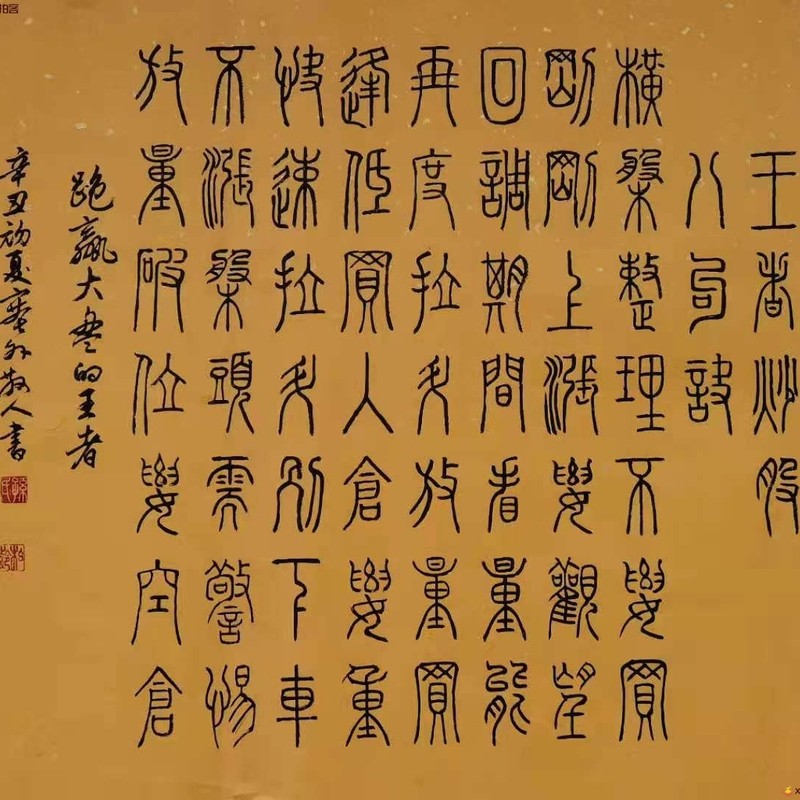 王者炒股
八句訣
橫槃整理不要買
剛剛上漲要觀望
回調期間看量能
再度拉升放量買
逢低買入倉要重
快速拉升別下車
不漲槃頭需警惕
放量破位要空倉
跑贏大盘的王者
辛丑初夏塞外散人書